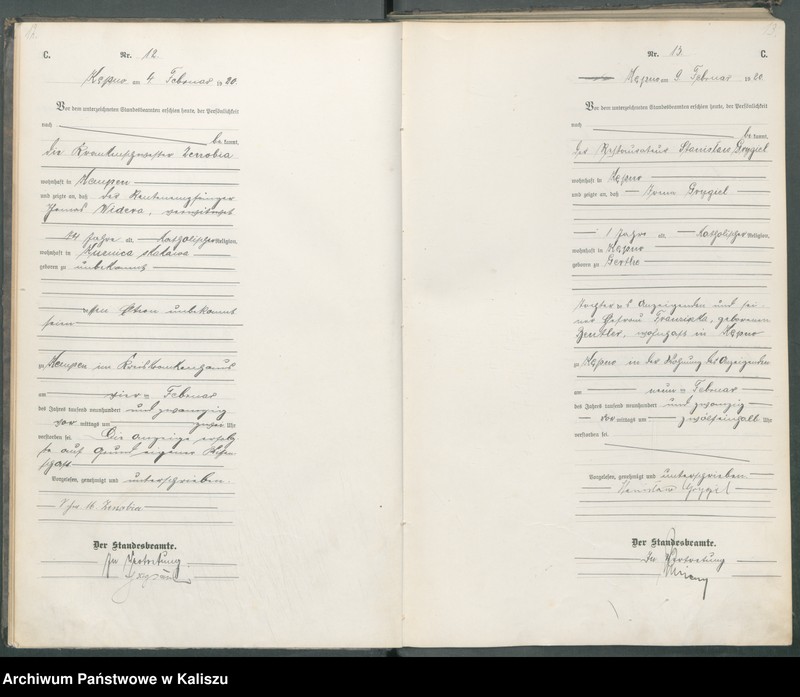 C. Nr. 12.
Kępno am 4. Februar 1920.
Vor dem unterzeichneten Standesbeamten erschien heute, der Persönlichkeit
nach
bekannt,
die Krankenschwester Zenobia
wohnhaft in Kempen
und zeigte an, daß der Rentenempfänger
Thomas Widera, verwitwet
Jahre alt, katholischer Religion,
wohnhaft in
geboren zu unbekannt
Eltern unbekannt
zu Kempen im Kreiskrankenhaus
am vier Februar
des Jahres tausend neunhundert und zwanzig
vor mittags um Uhr
verstorben sei. Die Anzeige erfolg
te auf Grund eigener Wissen
schaft
Vorgelesen, genehmigt und unterschrieben.
Zenobia
Der Standesbeamte.
In Vertretung
Nr. 13. C.
Kępno am 9. Februar 1920
Vor dem unterzeichneten Standesbeamten erschien heute, der Persönlichkeit
nach
bekannt,
der Restaurateur Stanislaus Grygiel
wohnhaft in Kępno
und zeigte an, daß Irena Grygiel
1 Jahre alt, katholischer Religion,
wohnhaft in Kępno
geboren zu Gerthe
Tochter des Anzeigenden und sei-
ner Ehefrau Franziska, geborenen
wohnhaft in Kępno
zu Kępno in der Wohnung des Anzeigenden
am neun Februar
des Jahres tausend neunhundert und zwanzig
vor mittags um zwölfeinhalb Uhr
verstorben sei.
Vorgelesen, genehmigt und unterschrieben
Stanislaus Grygiel
Der Standesbeamte.
In Vertretung
Archiwum Państwowe w Kaliszu